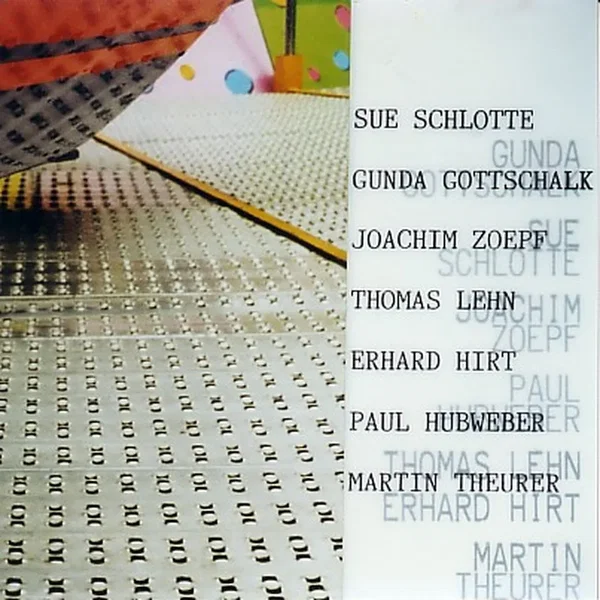 SUE SCHLOTTE
GUNDA
GUNDA GOTTSCHALK
GOTTSCHALK
JOACHIM ZOEPF
SUE
SCHLOTTE
THOMAS LEHN
JOACHIM
ZOEPF
ERHARD HIRT
PAUL
PAUL HUBWEBER
HUBWEBER
THOMAS LEHN
MARTIN THEURER
ERHARD HIRT
MARTIN
THEURER